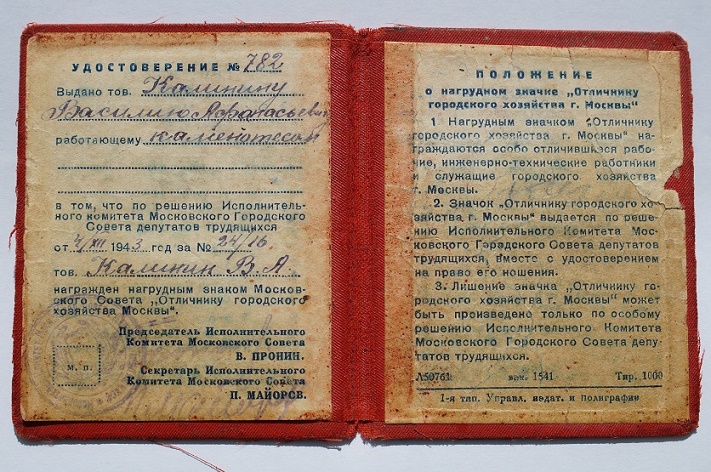 УДОСТОВЕРЕНИЕ № 782
Выдано тов. Калинину
Василию Афанасьевич
работающему каменотесом
в том, что по решению Исполнитель-
ного комитета Московского Городского
Совета депутатов трудящихся
от 4/XII 1943 год за № 24/16.
тов. Калинин В. А.
награжден нагрудным знаком Москов-
ского Совета „Отличнику городского
хозяйства Москвы“.
Председатель Исполнительного
Комитета Московского Совета
В. ПРОНИН.
М. П.
Секретарь Исполнительного
Комитета Московского Совета
П. МАЙОРОВ.
ПОЛОЖЕНИЕ
о нагрудном значке „Отличнику
городского хозяйства г. Москвы“
1. Нагрудным значком „Отличнику
городского хозяйства г. Москвы“ на-
граждаются особо отличившиеся рабо-
чие, инженерно-технические работники
и служащие городского хозяйства
г. Москвы.
2. Значок „Отличнику городского хо-
зяйства г. Москвы“ выдается по реше-
нию Исполнительного Комитета Мо-
сковского Городского Совета депутатов
трудящихся, вместе с удостоверением
на право его ношения.
3. Лишение значка „Отличнику го-
родского хозяйства г. Москвы“ может
быть произведено только по особому
решению Исполнительного Комитета
Московского Городского Совета депу-
татов трудящихся.
Л50761 зак. 1541 Тир. 1000
1-я тип. Управл. издат. и полиграфии